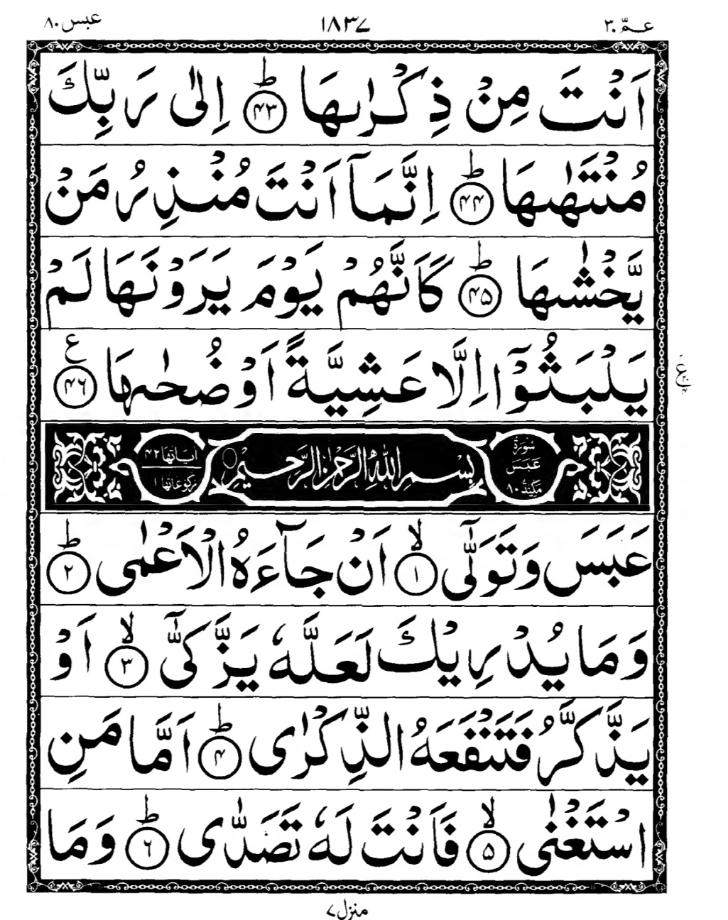 عمّ ٣٠ ١٨٣٧ عبس ٨٠
اَنْتَ مِنْ ذِكْرٰىهَا ؕ۝۴۳ اِلٰى رَبِّكَ
مُنْتَهٰىهَا ؕ۝۴۴ اِنَّمَاۤ اَنْتَ مُنْذِرُ مَنْ
يَّخْشٰىهَا ؕ۝۴۵ كَاَنَّهُمْ يَوْمَ يَرَوْنَهَا لَمْ
يَلْبَثُوْۤا اِلَّا عَشِيَّةً اَوْ ضُحٰىهَا ۝۴۶ ع
سُوْرَةُ عَبَسَ مَكِّيَّةٌ ٨٠ بِسْمِ اللّٰهِ الرَّحْمٰنِ الرَّحِيْمِ اٰيَاتُهَا ۴۲ رُكُوْعَاتُهَا ۱
عَبَسَ وَتَوَلّٰۤى ۙ۝۱ اَنْ جَآءَهُ الْاَعْمٰى ؕ۝۲
وَمَا يُدْرِيْكَ لَعَلَّهٗ يَزَّكّٰۤى ۙ۝۳ اَوْ
يَذَّكَّرُ فَتَنْفَعَهُ الذِّكْرٰى ؕ۝۴ اَمَّا مَنِ
اسْتَغْنٰى ۙ۝۵ فَاَنْتَ لَهٗ تَصَدّٰى ؕ۝۶ وَمَا
منزل ٧